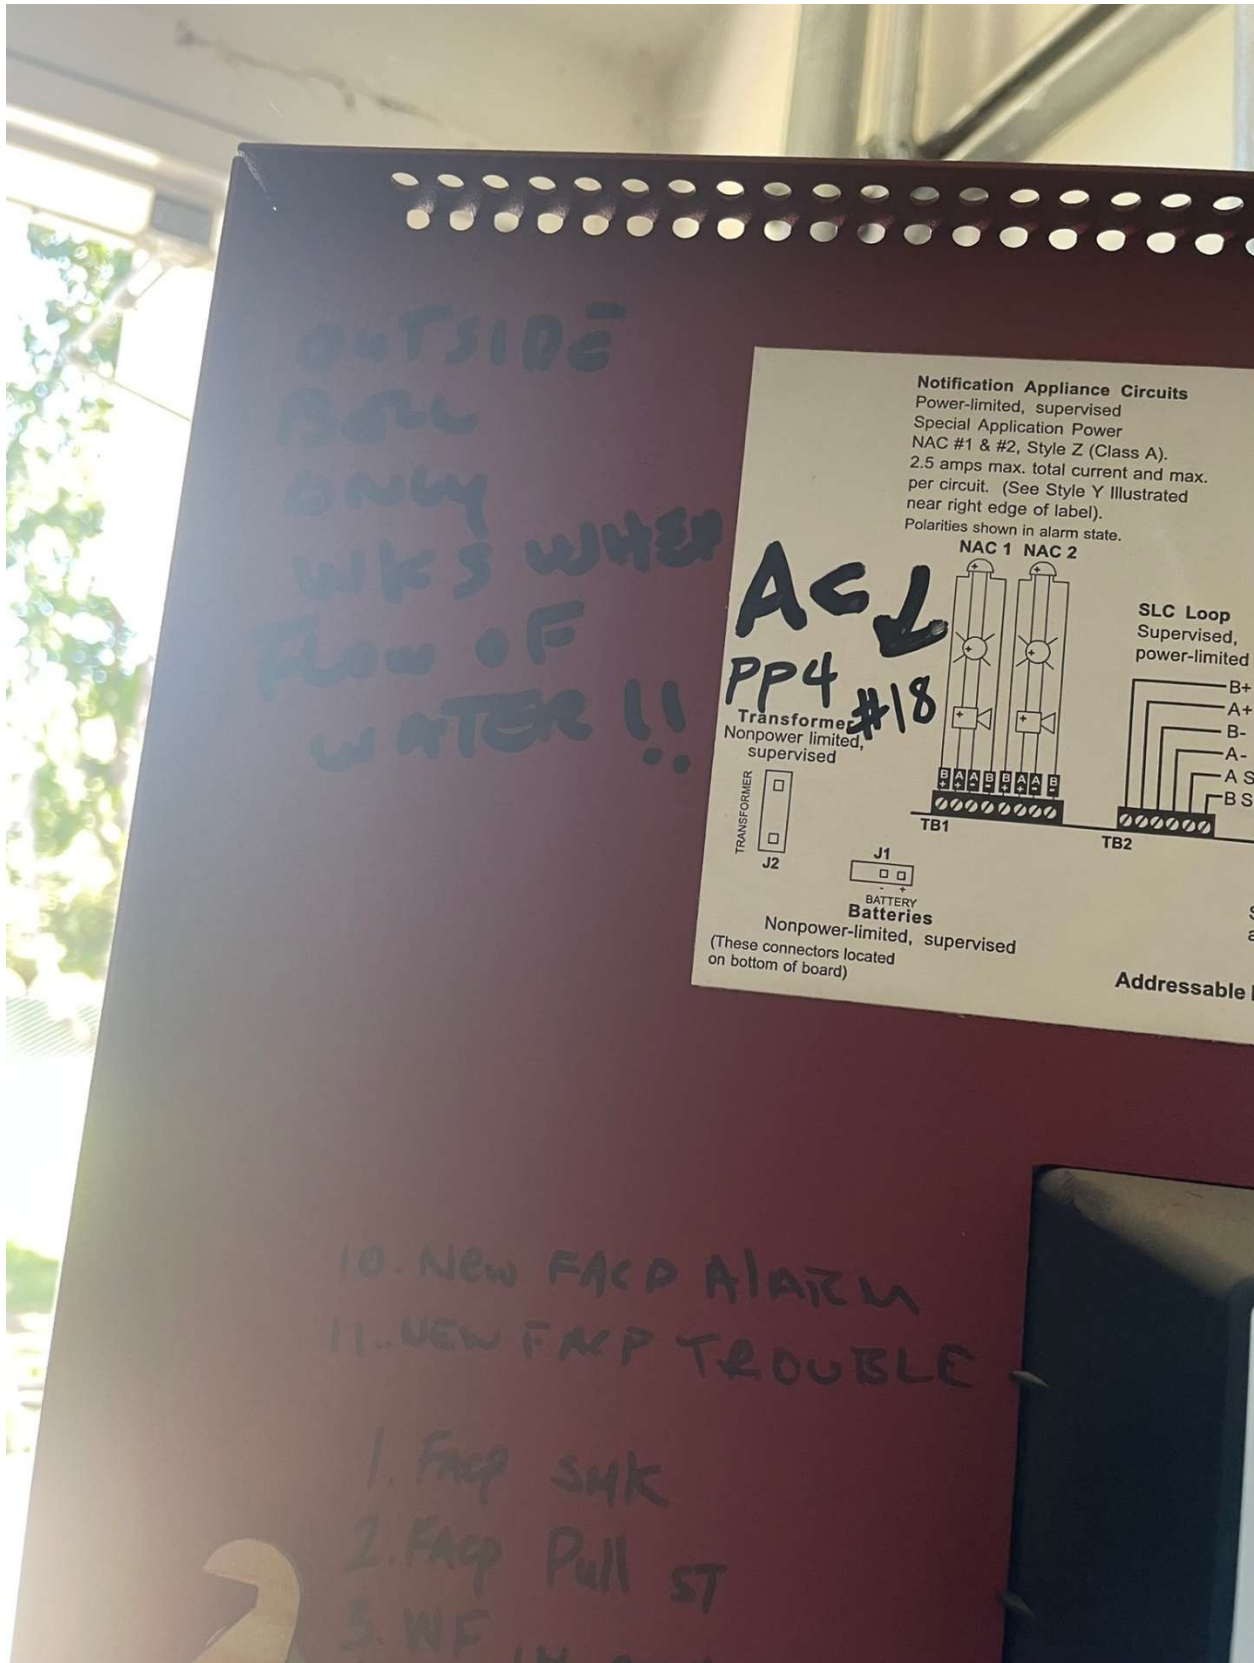 OUTSIDE
BELL
ONLY
WKS WHEN
FLOW OF
WATER !!
Notification Appliance Circuits
Power-limited, supervised
Special Application Power
NAC #1 & #2, Style Z (Class A).
2.5 amps max. total current and max.
per circuit. (See Style Y Illustrated
near right edge of label).
Polarities shown in alarm state.
NAC 1 NAC 2
AC
PP4 #18
Transformer
Nonpower limited,
supervised
TRANSFORMER
J2
B+ A+ A- B- B+ A+ A- B-
TB1
SLC Loop
Supervised,
power-limited
B+
A+
B-
A-
A S
B S
TB2
J1
- +
BATTERY
Batteries
Nonpower-limited, supervised
(These connectors located
on bottom of board)
Addressable
10. NEW FACP AlARM
11. NEW FACP TROUBLE
1. FACP SMK
2. FACP Pull ST
3. WF